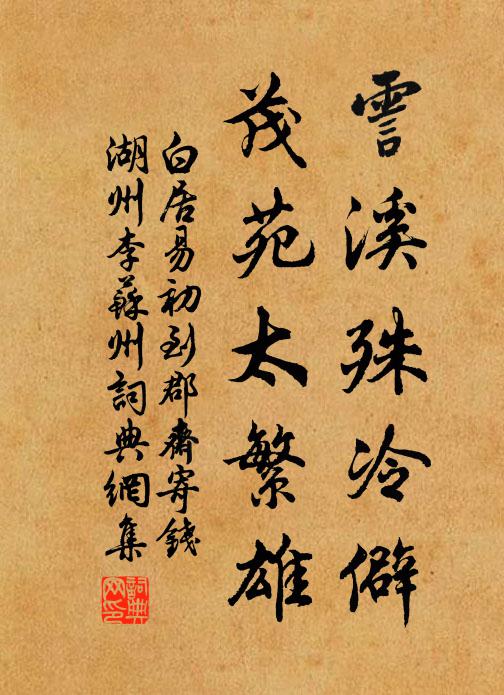 霅溪殊冷僻
茂苑太繁雄
白居易初到郡齋寄錢
湖州李蘇州詞典網集
詞典
网印